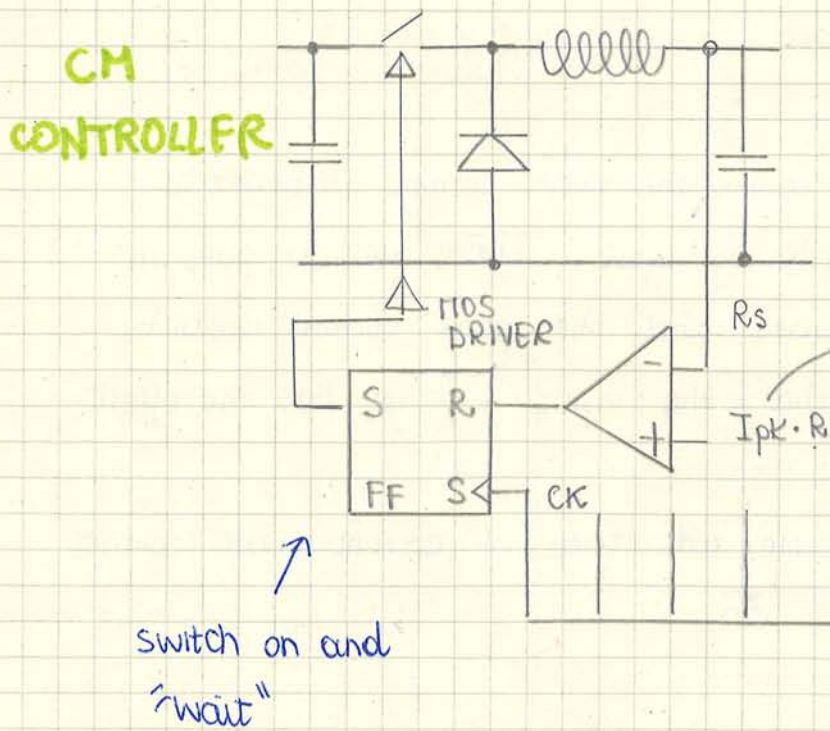 CM
CONTROLLER
MOS
DRIVER
Rs
S R
Ipk·R
FF S CK
switch on and
"wait"